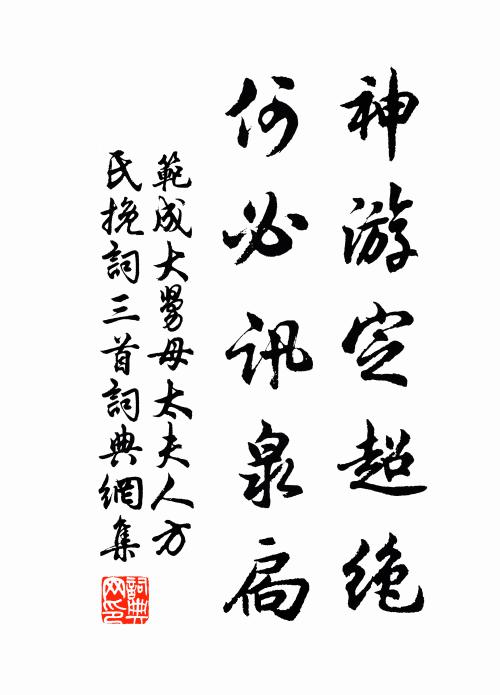 神游定超绝
何必讯泉扃
範成大舅母太夫人方
氏挽詞三首詞典網集
詞典网印